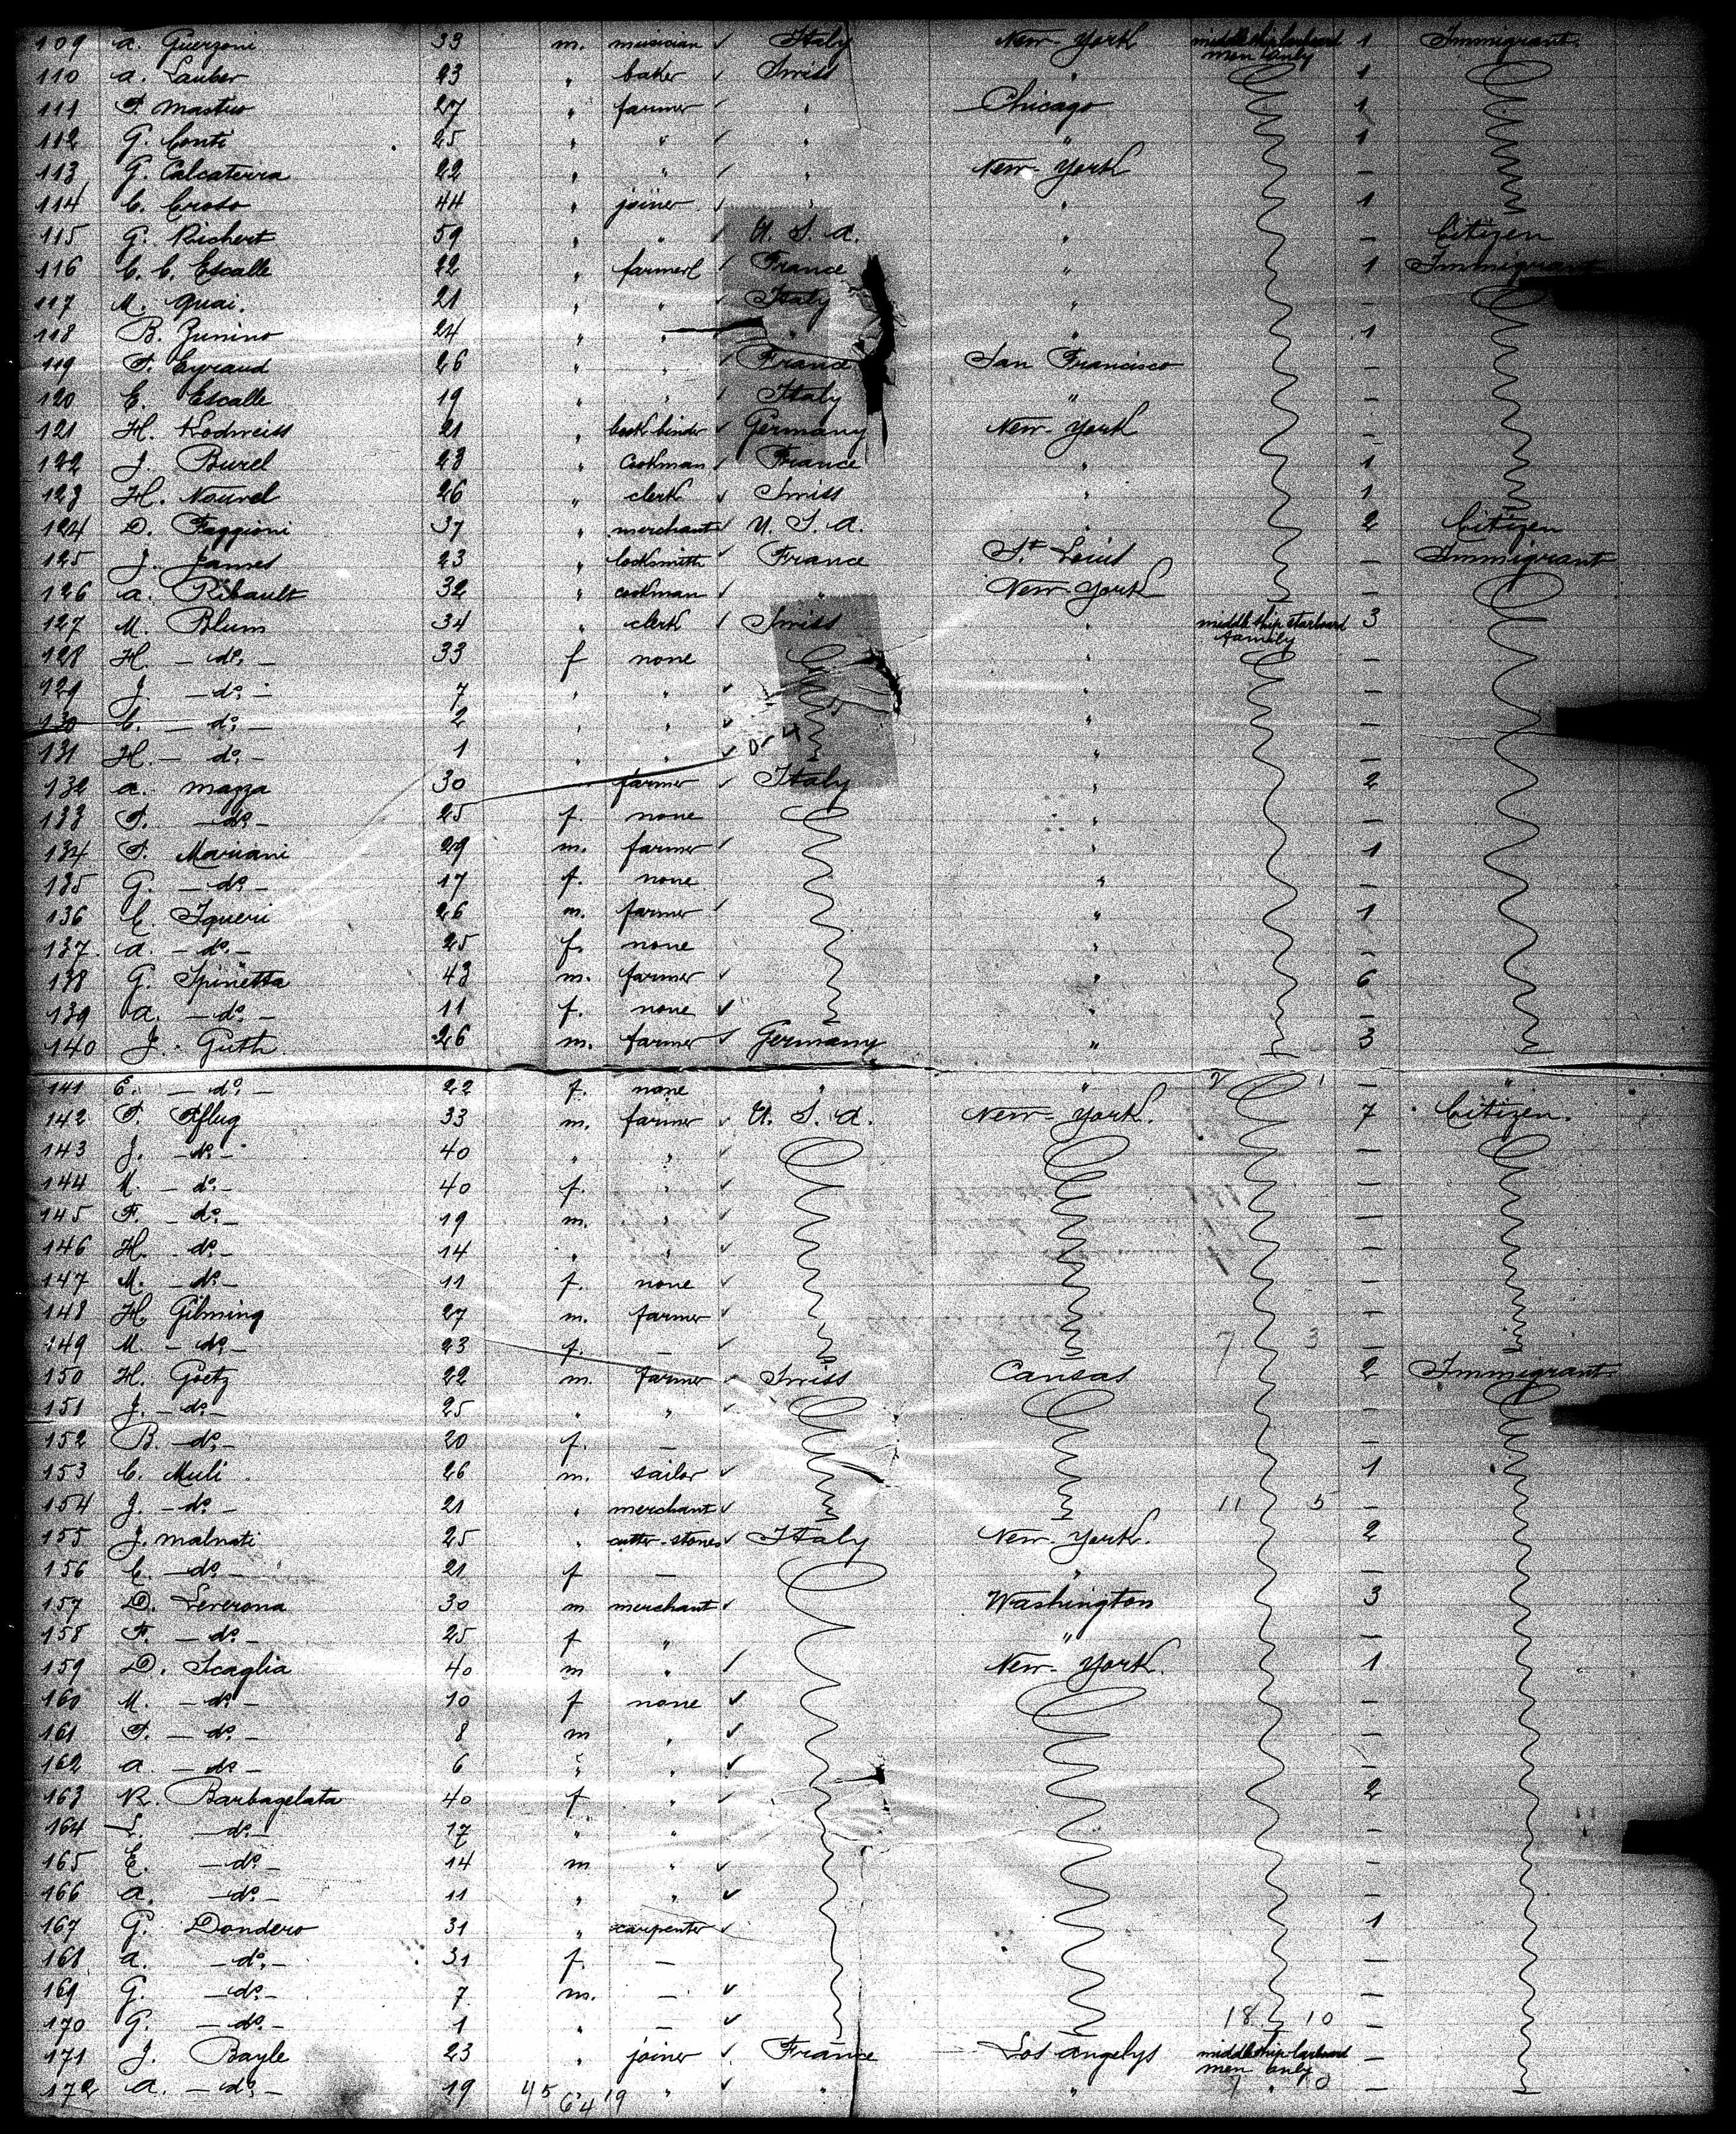 109 A. Guerzoni 33 m. musician ✓ Italy New-York middle ship larboard men only 1 Immigrant.
110 A. Lauber 23 " baker ✓ Swiss " 1
111 F. Mastro 27 " farmer ✓ " Chicago 1
112 G. Conti 25 " " ✓ " " 1
113 G. Calcaterra 22 " " ✓ " New-York —
114 C. Croso 44 " joiner ✓ " " 1
115 G. Richert 59 " " ✓ U. S. A. " — Citizen
116 C. C. Escalle 22 " farmer ✓ France " 1 Immigrant
117 M. Quai. 21 " " ✓ Italy " —
118 B. Zunino 24 " " " " 1
119 F. Eyraud 26 " " ✓ France San Francisco —
120 E. Escalle 19 " " ✓ Italy " —
121 H. Kodweiss 21 " book binder ✓ Germany New-York —
122 J. Burel 23 " Cookman ✓ France " 1
123 H. Nouvel 26 " clerk ✓ Swiss " 1
124 D. Faggioni 37 " merchant ✓ U. S. A. " 2 Citizen
125 J. James 23 " locksmith ✓ France St. Louis — Immigrant
126 A. Ribault 32 " cookman ✓ " New-York —
127 M. Blum 34 " clerk ✓ Swiss " middle ship starboard family 3
128 H. — do. — 33 f none " —
129 J. — do. — 7 " " ✓ " —
130 C. — do. — 2 " " ✓ " —
131 H. — do. — 1 " " ✓ " —
132 A. Mazza 30 farmer ✓ Italy " 2
133 F. — do. — 25 f. none " —
134 F. Mariani 29 m. farmer ✓ " 1
135 G. — do. — 17 f. none " —
136 C. Iqueri 26 m. farmer ✓ " 1
137. A. — do. — 25 f. none " —
138 G. Spinetta 43 m. farmer ✓ " 6
139 A. — do. — 11 f. none ✓ " —
140 J. Guth. 26 m. farmer ✓ Germany " 3
141 E. — do. — 22 f. none " " — "
142 F. Pflug 33 m. farmer ✓ U. S. A. New-York. 7 Citizen.
143 J. — do. — 40 " " ✓ —
144 M. — do. — 40 f. " ✓ —
145 F. — do. — 19 m. " ✓ —
146 H. — do. — 14 " " ✓ —
147 M. — do. — 11 f. none ✓ —
148 H. Gilming 27 m. farmer ✓ —
149 M. — do. — 23 f. — ✓ 7 3 —
150 H. Goetz 22 m. farmer ✓ Swiss Cansas 2 Immigrant
151 J. — do. — 25 " " ✓ —
152 B. — do. — 20 f. — —
153 C. Muli 26 m. sailor ✓ 1
154 J. — do. — 21 " merchant ✓ 11 5 —
155 J. Malnati 25 " cutter-stones ✓ Italy New-York. 2
156 C. — do. — 21 f — " —
157 D. Leverona 30 m merchant ✓ Washington 3
158 F. — do. — 25 f " " —
159 D. Scaglia 40 m " ✓ New-York. 1
160 M. — do. — 10 f none ✓ —
161 F. — do. — 8 m " ✓ —
162 A. — do — 6 " " ✓ —
163 R. Barbagelata 40 f " ✓ 2
164 L. — do. — 17 " " —
165 E. — do. — 14 m " ✓ —
166 A. — do. — 11 " " ✓ —
167 G. Dondero 31 " carpenter ✓ 1
168 A. — do. — 31 f. — —
169 G. — do. — 7 m. — ✓ —
170 G. — do. — 1 " — ✓ 18 10 —
171 J. Bayle 23 " joiner ✓ France Los Angelys middle ship larboard men only —
172 A. — do. — 19 45 64 19 " ✓ " " —